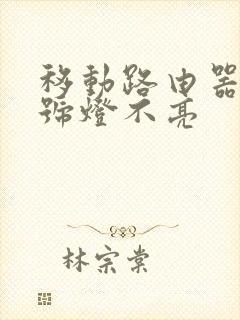 移動路由器
號燈不亮
林宗棠